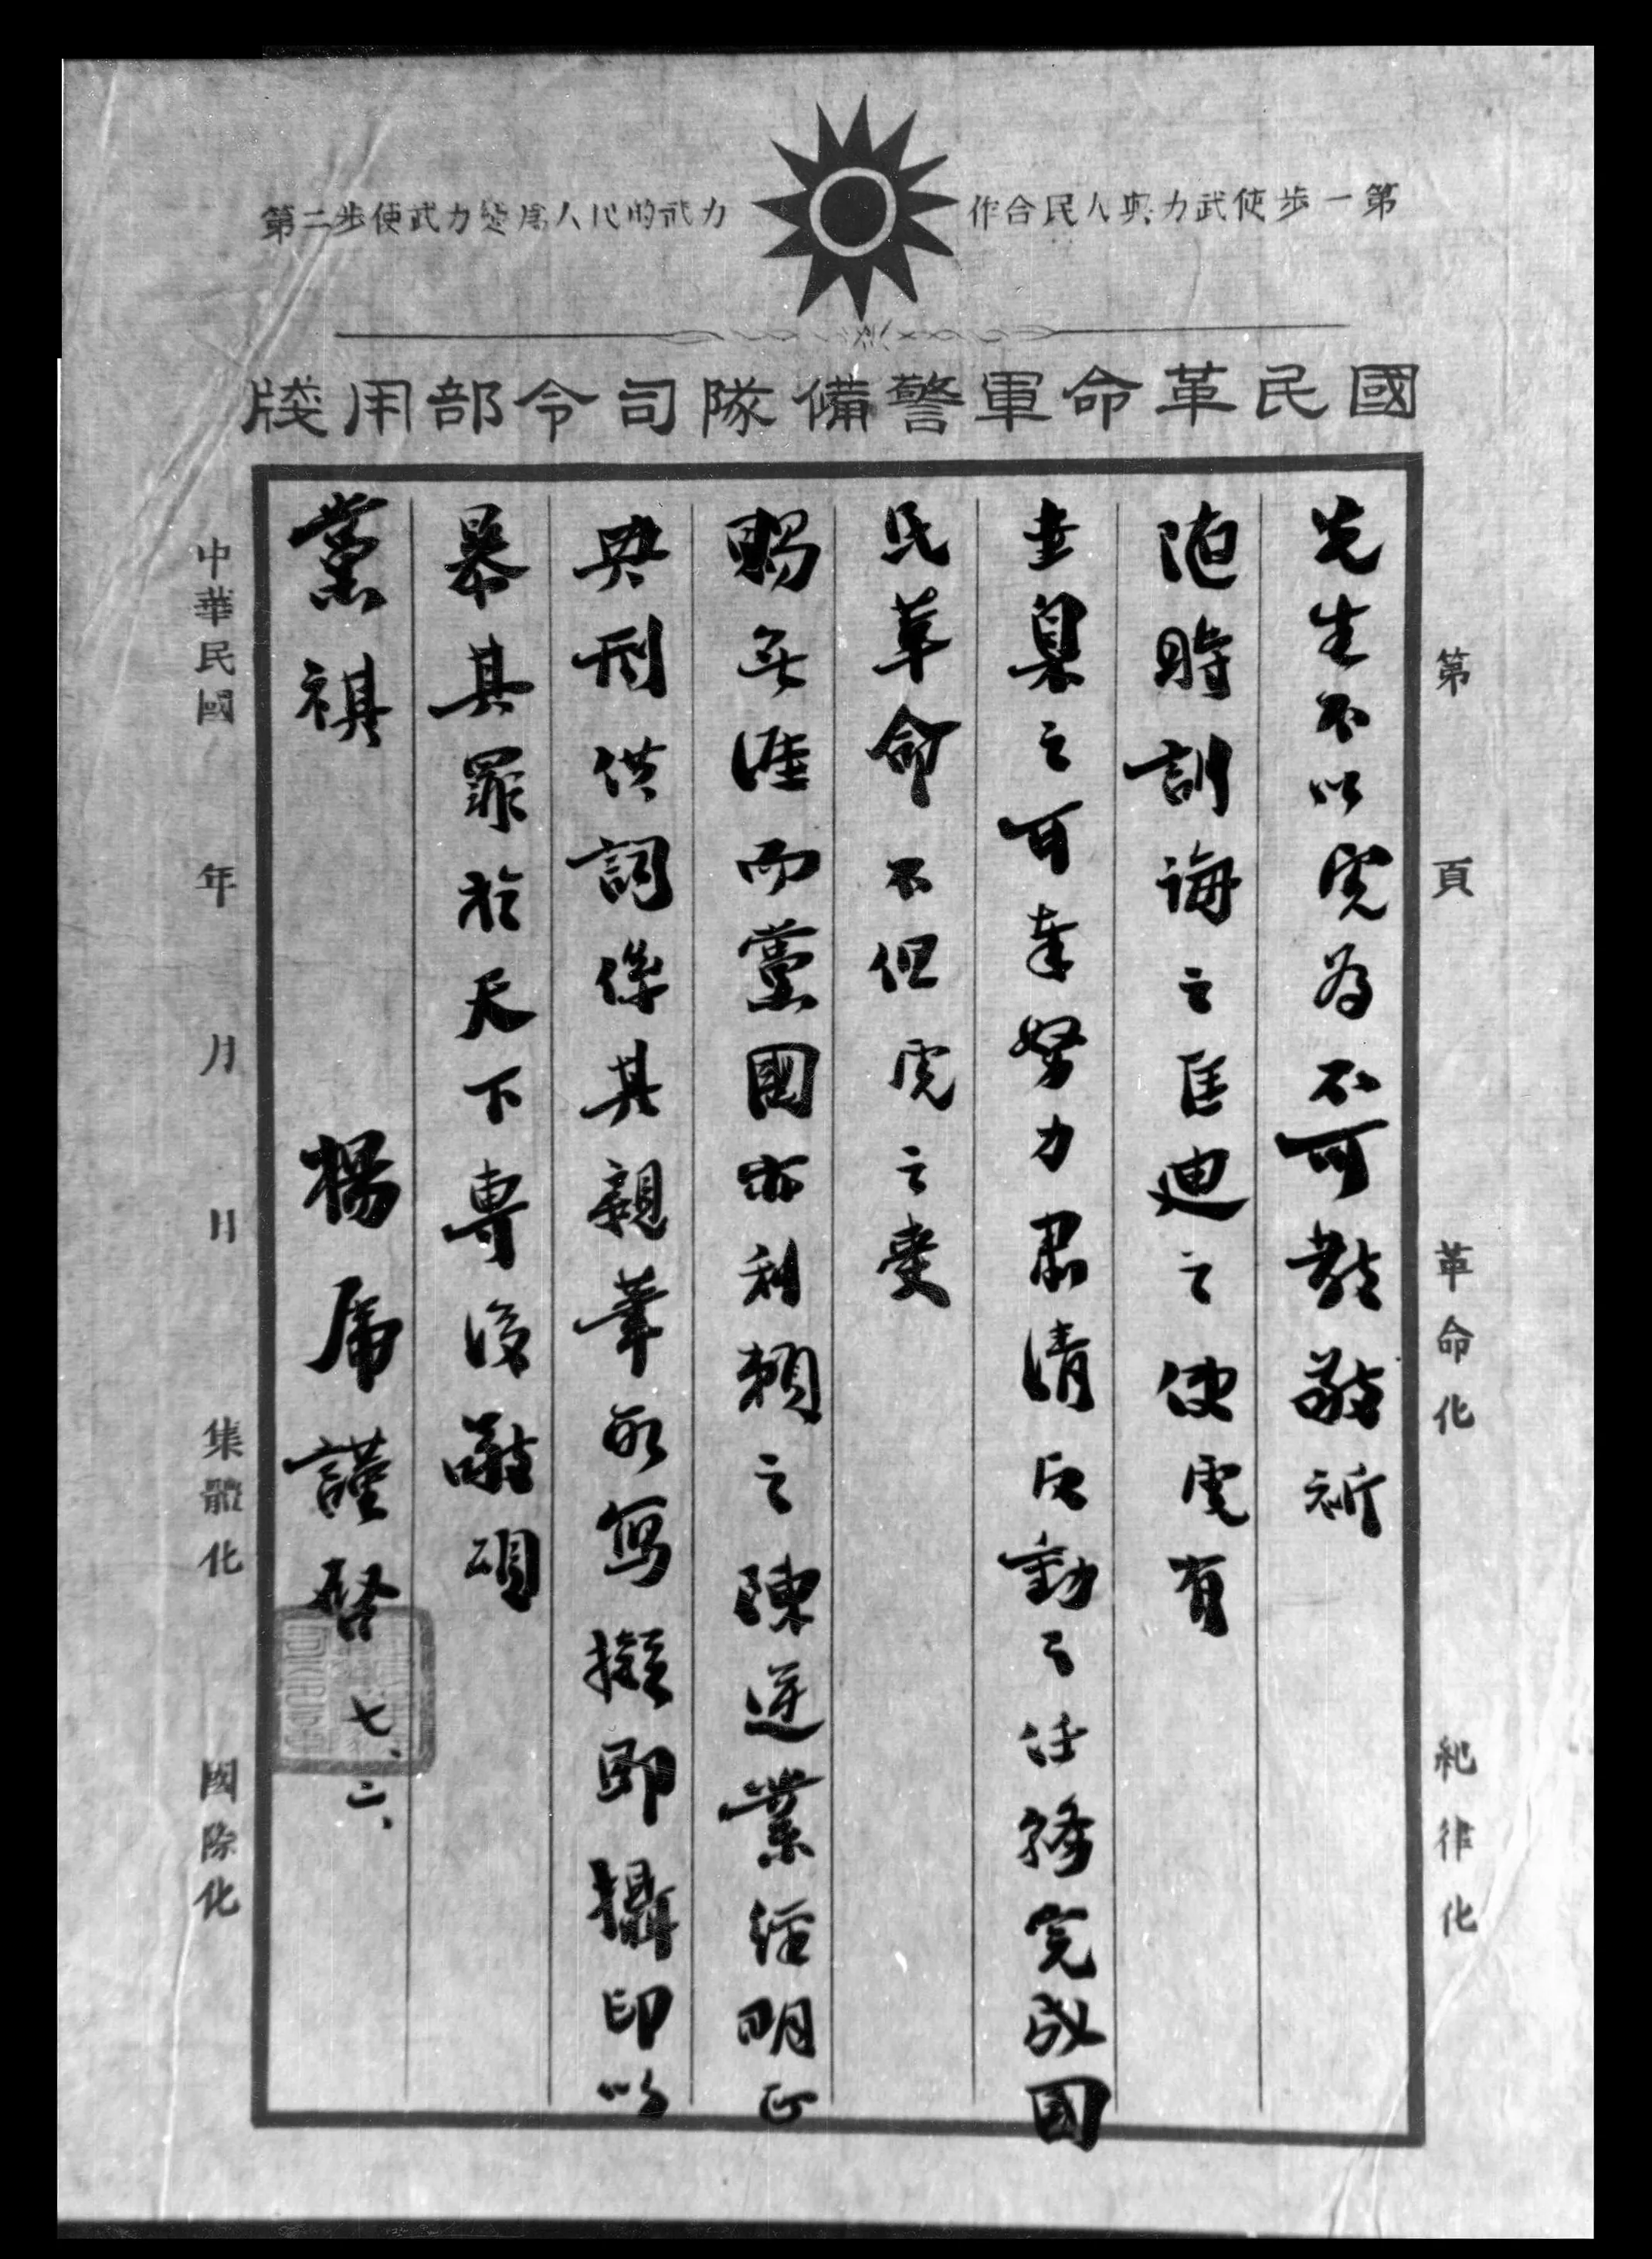 第一步使武力與人民合作
第二步使武力變為人民的武力
國民革命軍警備隊司令部用牋
第 頁 革命化 紀律化
先生不以虎為不可教敬祈
隨時訓誨之匡迪之使虎有
圭臬之可奉努力肅清反動之任務完成國
民革命不但虎之受
賜無涯而黨國亦利賴之陳逆業經明正
典刑供詞係其親筆所寫擬即攝印以
暴其罪於天下專復敬頌
黨祺 楊虎謹啓 七、二、
中華民國 年 月 日 集體化 國際化